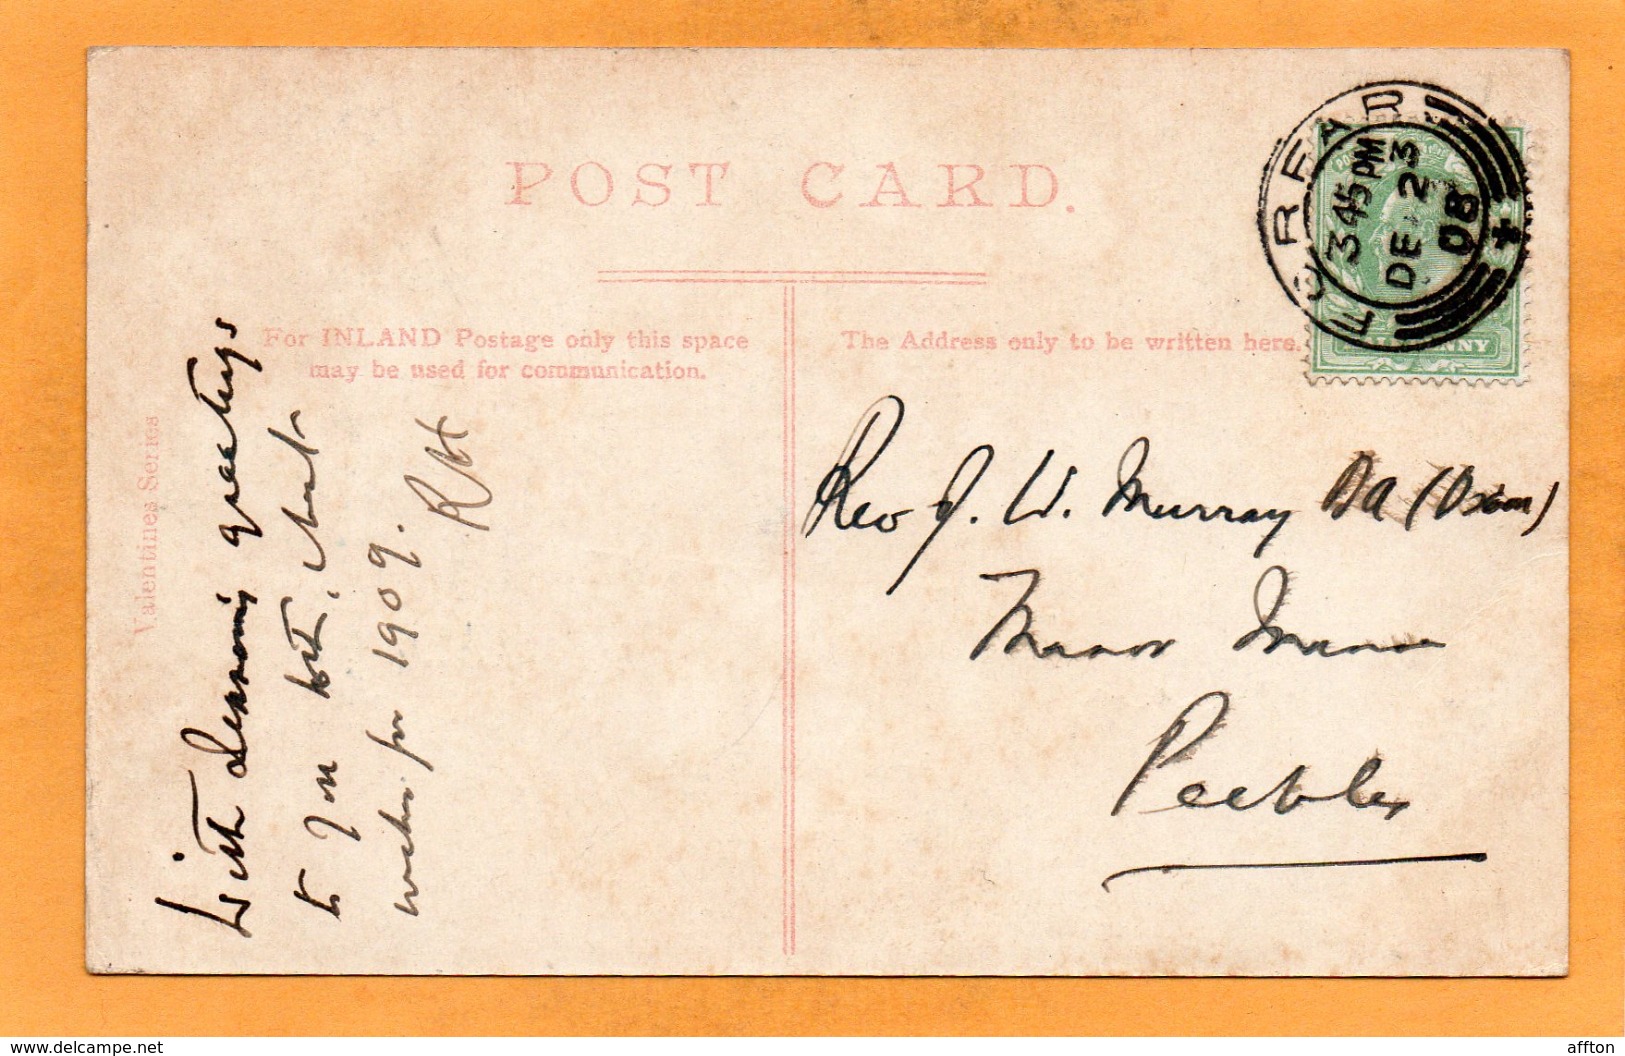 POST CARD.
For INLAND Postage only this space
may be used for communication.
The Address only to be written here.
Valentines Series
FORFAR
3 45 PM
DE 23
08
4
HALFPENNY
With Seasons greetings
to you both, & best
wishes for 1909.
Rev J. W. Murray BA (Oxon)
Manor Manse
Peebles
www.delcampe.net
affton